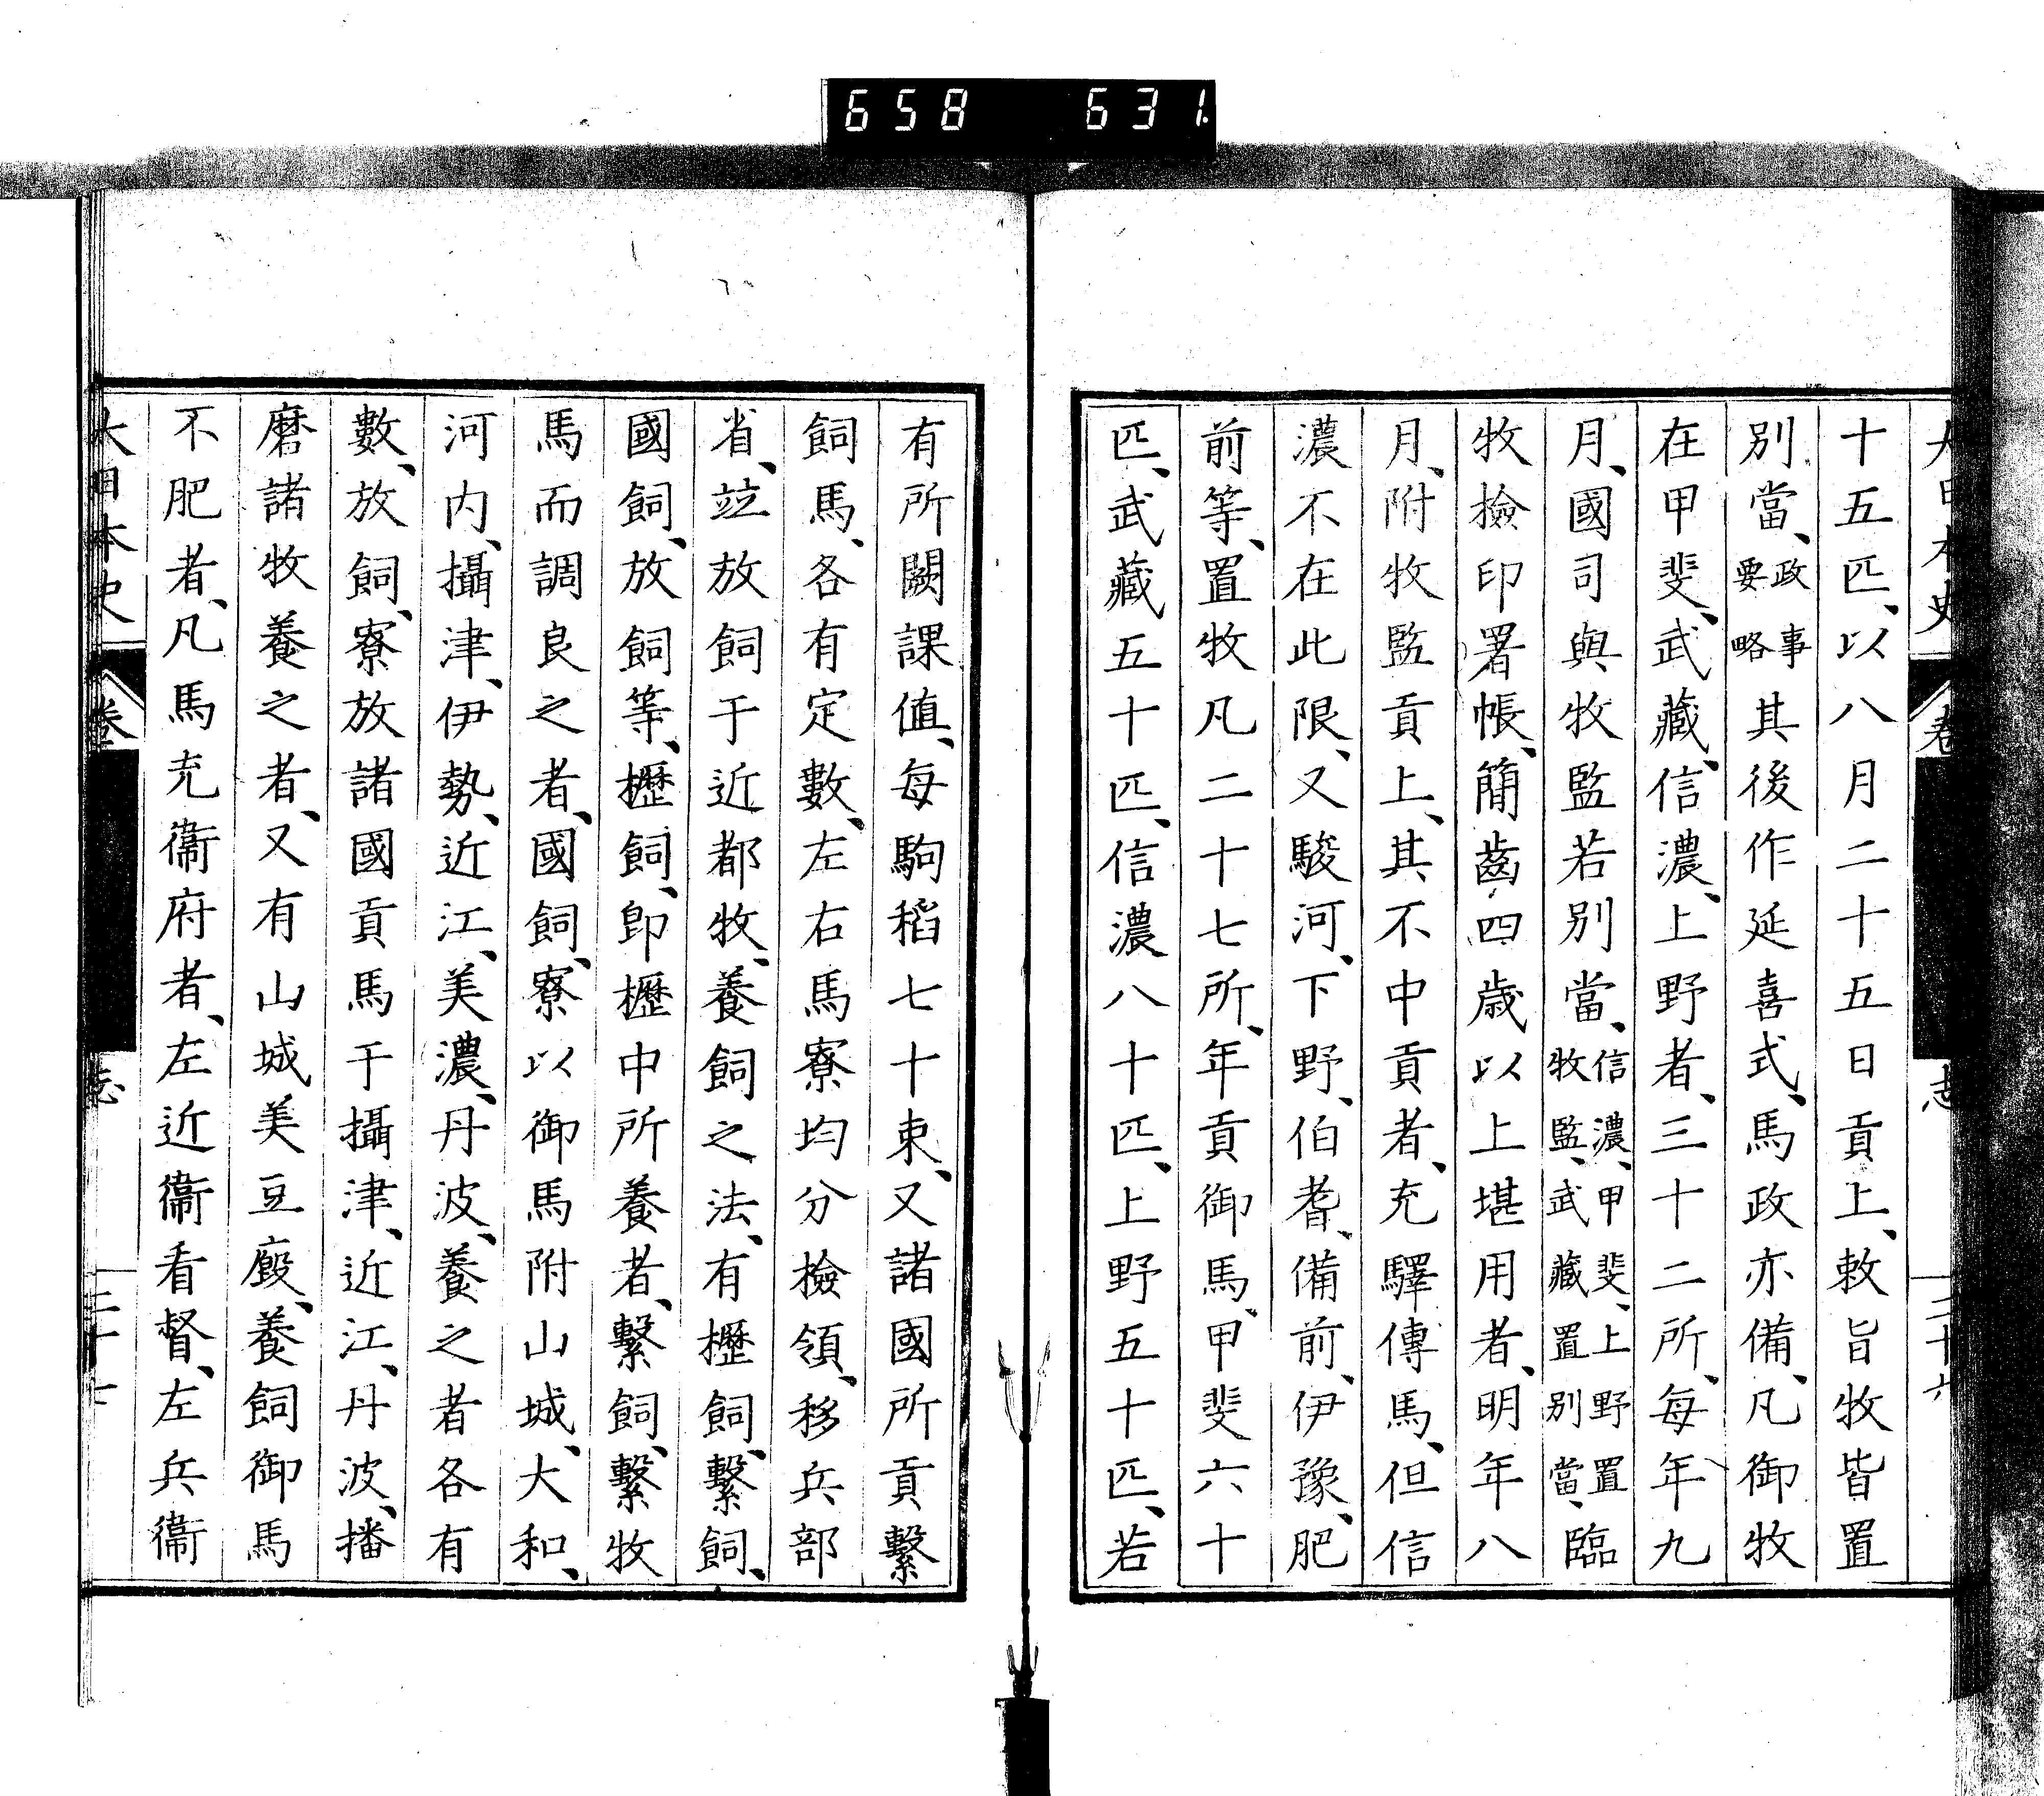 658 631.
大日本史 卷 志 二十六
十五匹、以八月二十五日貢上、敕旨牧皆置
別當、政事要略其後作延喜式、馬政亦備、凡御牧
在甲斐、武藏、信濃、上野者、三十二所、每年九
月、國司與牧監若別當、信濃、甲斐、上野置牧監、武藏置別當、臨
牧撿印署帳、簡齒四歲以上堪用者、明年八
月、附牧監貢上、其不中貢者、充驛傳馬、但信
濃不在此限、又駿河、下野、伯耆、備前、伊豫、肥
前等、置牧凡二十七所、年貢御馬、甲斐六十
匹、武藏五十匹、信濃八十匹、上野五十匹、若
有所闕課値、每駒稻七十束、又諸國所貢繫
飼馬、各有定數、左右馬寮均分撿領、移兵部
省、竝放飼于近都牧、養飼之法、有櫪飼、繫飼、
國飼、放飼等、櫪飼、卽櫪中所養者、繫飼、繫牧
馬而調良之者、國飼、寮以御馬附山城、大和、
河內、攝津、伊勢、近江、美濃、丹波、養之者各有
數、放飼、寮放諸國貢馬于攝津、近江、丹波、播
磨諸牧養之者、又有山城美豆廄、養飼御馬
不肥者、凡馬充衞府者、左近衞看督、左兵衞
大日本史 卷 志 二十七